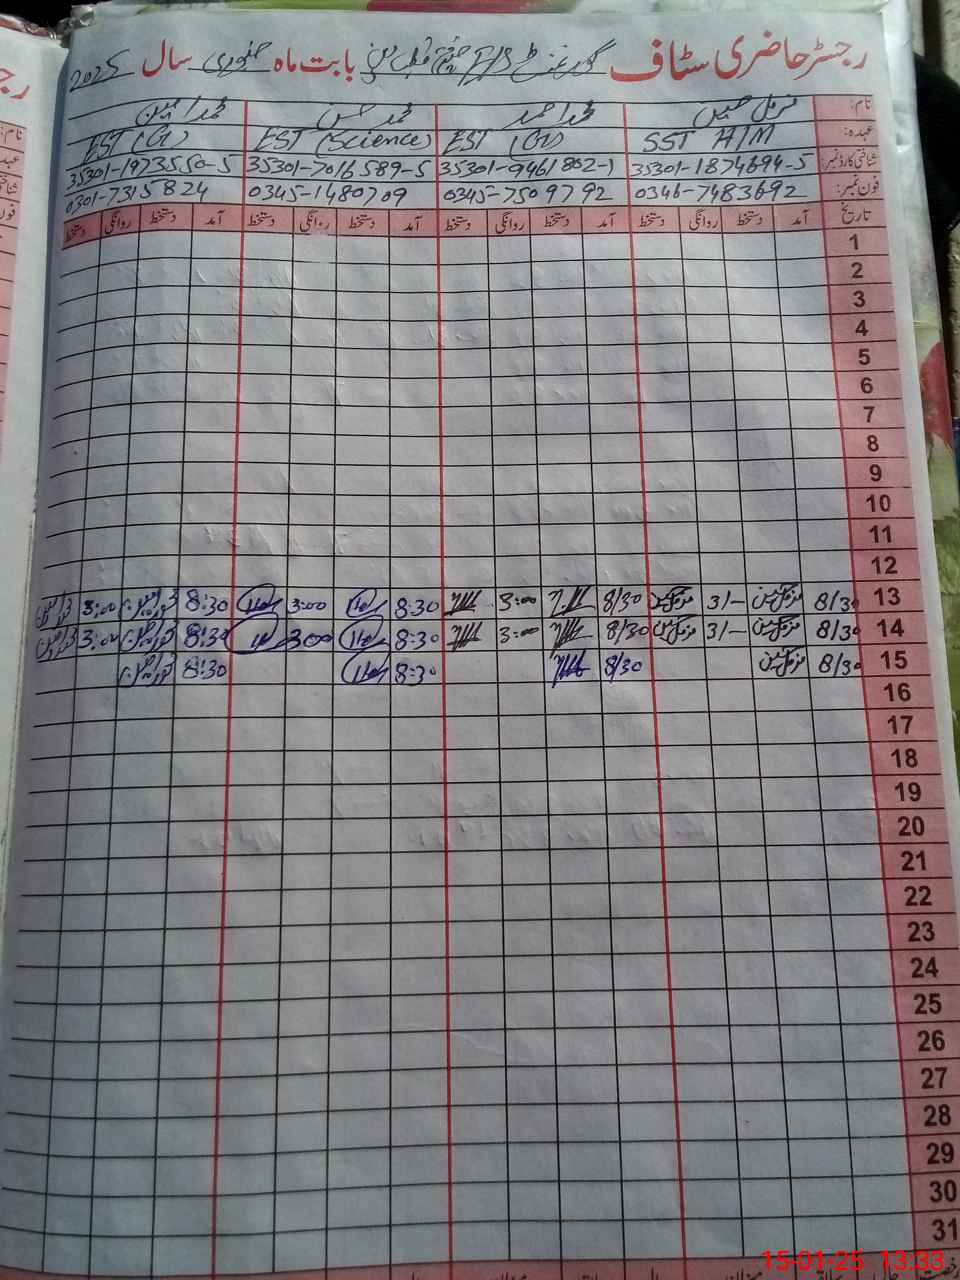 رجسٹر حاضری سٹاف گورنمنٹ بابت ماہ جنوری سال 2025
نام: مزمل حسین محمد احمد محمد حسن محمد امین
عہدہ: SST H/M EST (G) EST (Science) EST (G)
شناختی کارڈ نمبر: 35301-1874694-5 35301-9461802-1 35301-7016589-5 35301-1973550-5
فون نمبر: 0346-7483692 0345-7509792 0345-1480709 0301-7315824
تاریخ آمد دستخط روانگی دستخط آمد دستخط روانگی دستخط آمد دستخط روانگی دستخط آمد دستخط روانگی دستخط
1
2
3
4
5
6
7
8
9
10
11
12
13 8/30 مزمل حسین 3/- مزمل حسین 8/30 3:00 8:30 3:00 8:30 محمد امین 3:00 محمد امین
14 8/30 مزمل حسین 3/- مزمل حسین 8/30 3:00 8:30 3:00 8:30 محمد امین 3:00 محمد امین
15 8/30 مزمل حسین 8/30 8:30 8:30 محمد امین
16
17
18
19
20
21
22
23
24
25
26
27
28
29
30
31
15-01-25 13:33